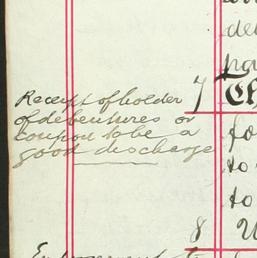 Receipt of holder
of debentures or
coupon to be a
good discharge
7 Th
fo
to
to
8